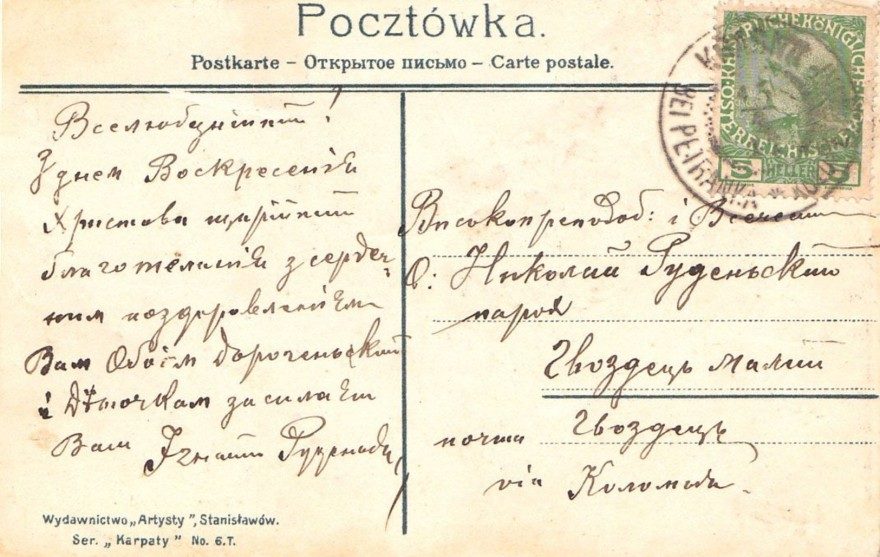 Pocztówka.
Postkarte – Открытое письмо – Carte postale.
5 HELLER 5
BEI PETRANKA
Вселюбезнійший!
З днем Воскресенія
Христова щирійший
благожеланія з сердеч-
ним поздоровленієм
Вам Обоїм дороченьский
і Дѣточкам засилает
Вам Ігнатий
Високопреподоб: і Всечест
О: Николай Руденьский
парох
Гвоздець малий
почта Гвоздець
via Коломия.
Wydawnictwo „Artysty", Stanisławów.
Ser. „Karpaty" No. 6.T.